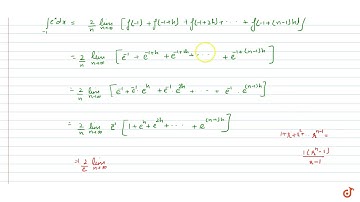 ∫₋₁ eˣdx = 2/n lim n→∞ [f(-1) + f(-1+h) + f(-1+2h) + ··· + f(-1+(n-1)h)]
= 2/n lim n→∞ [e⁻¹ + e^(-1+h) + e^(-1+2h) + ··· + e^(-1+(n-1)h)]
= 2/n lim n→∞ [e⁻¹ + e⁻¹ e^h + e⁻¹ e^(2h) + ··· + e⁻¹ · e^((n-1)h)]
= 2/n lim n→∞ e⁻¹ [1 + e^h + e^(2h) + ··· + e^((n-1)h)]
1+r+r²+ ·· r^(n-1) =
1(rⁿ-1)/r-1
= 2/e lim n→∞